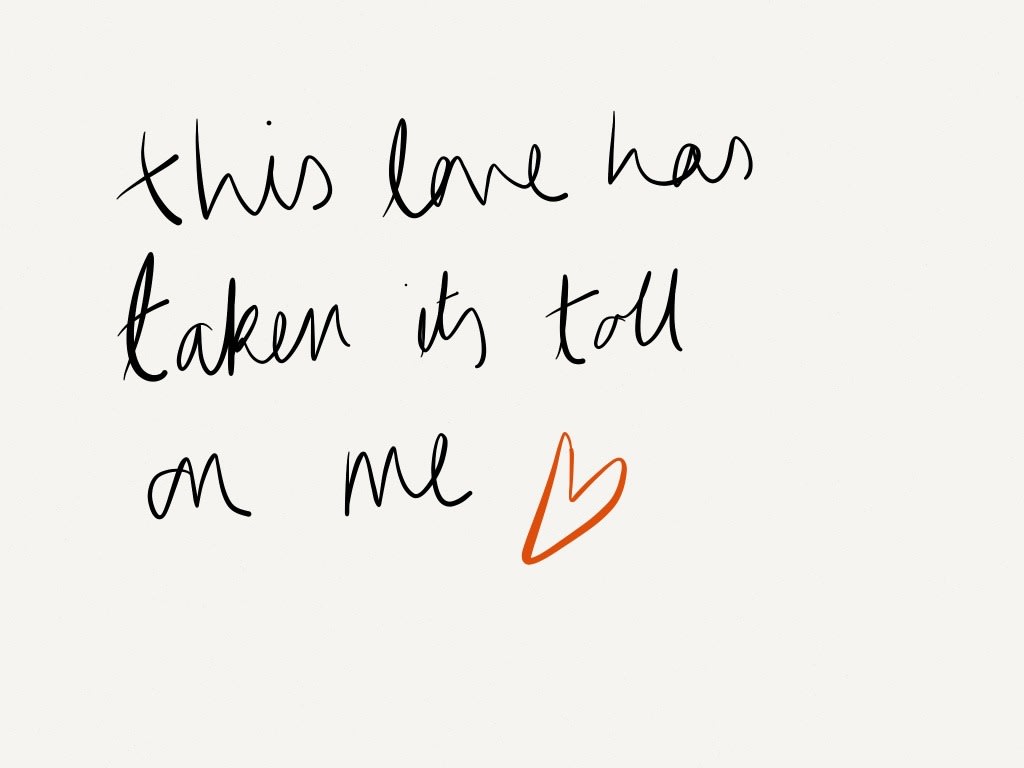 this love has
taken its toll
on me